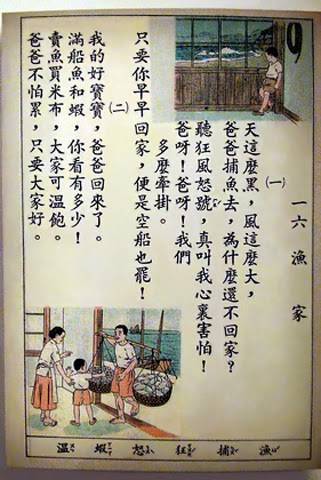 9
一六 漁家
(一)
天這麼黑，風這麼大，
爸爸捕魚去，為什麼還不回家？
聽狂風怒號，真叫我心裏害怕！
爸呀！爸呀！我們
多麼牽掛。
只要你早早回家，便是空船也罷！
(二)
我的好寶寶，爸爸回來了。
滿船魚和蝦，你看有多少！
賣魚買米布，大家可溫飽。
爸爸不怕累，只要大家好。
漁 捕 狂 怒 蝦 溫